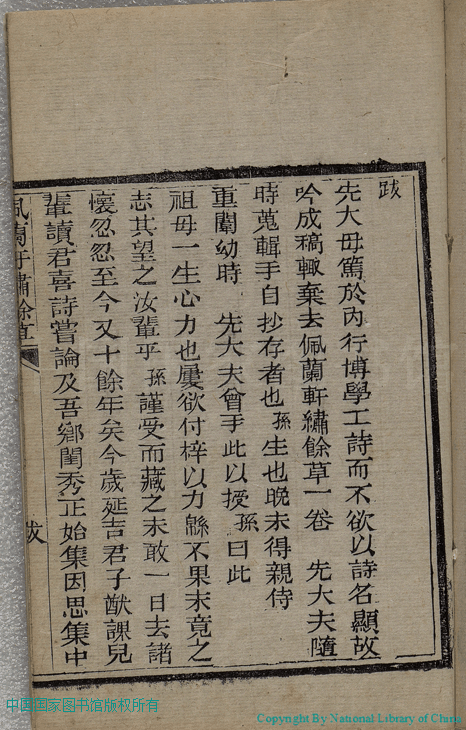 跋
先大母篤於內行博學工詩而不欲以詩名顯故
吟成稿輙棄去佩蘭軒繡餘草一卷　先大夫隨
時蒐輯手自抄存者也孫生也晚未得親侍
重闈幼時　先大夫曾手此以授孫曰此
祖母一生心力也屢欲付梓以力緜不果未竟之
志其望之汝輩乎孫謹受而藏之未敢一日去諸
懷忽忽至今又十餘年矣今歲延吉君子猷課兒
輩讀君喜詩嘗論及吾鄉閨秀正始集因思集中
佩蘭軒繡餘草
跋
中国国家图书馆版权所有
Copyright By National Library of China